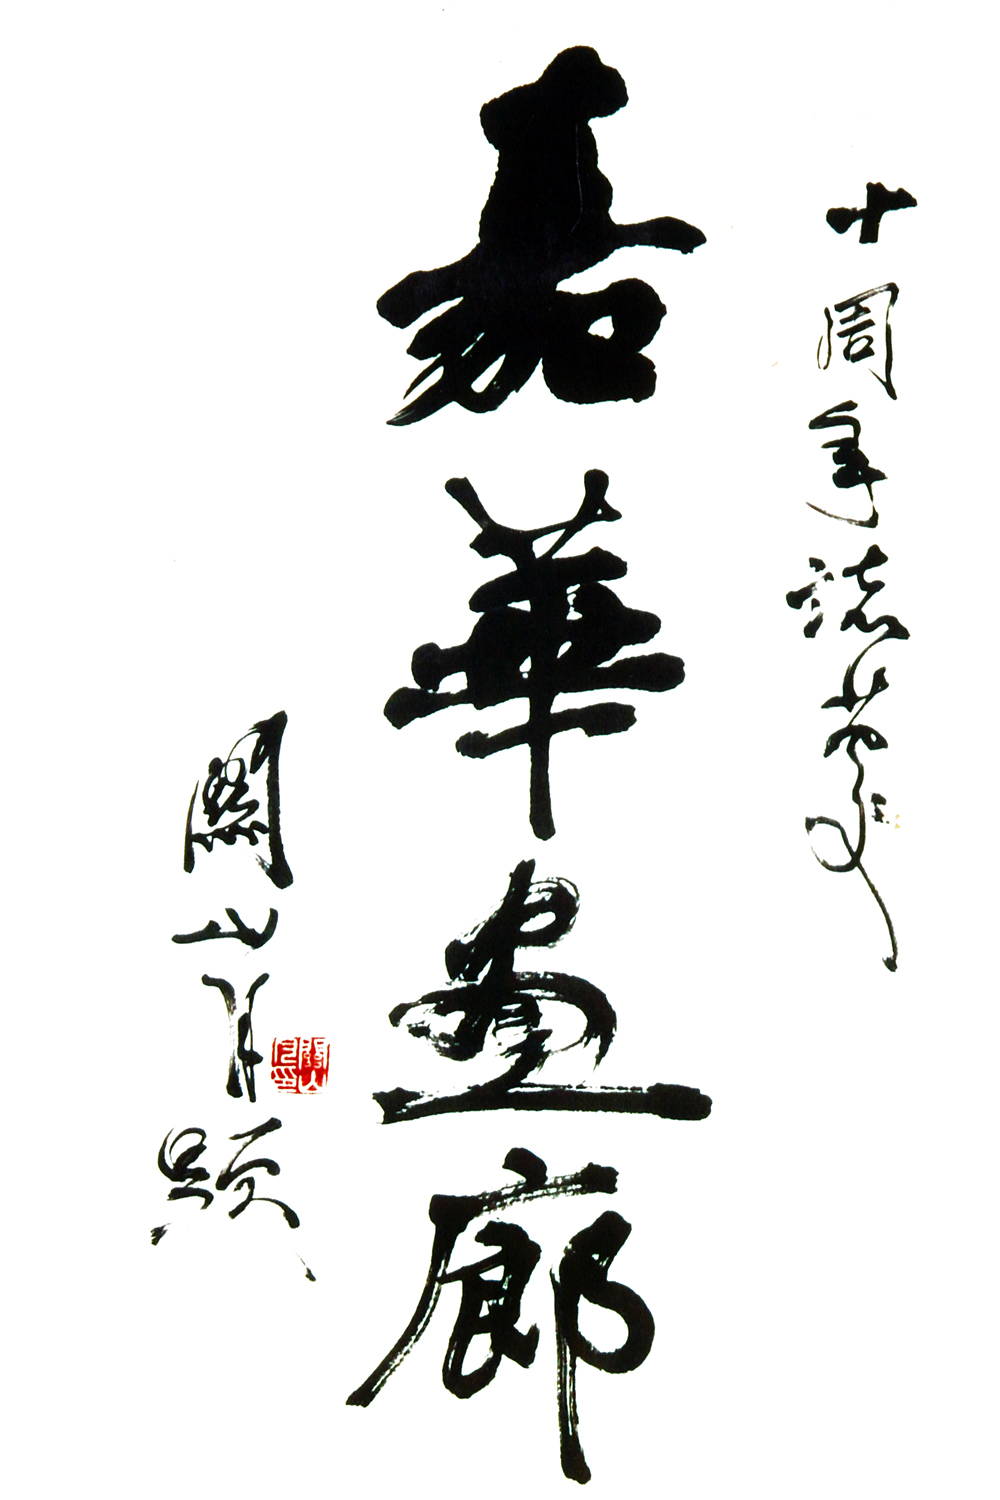 十周年誌慶
嘉華畫廊
關山月題
關山月印